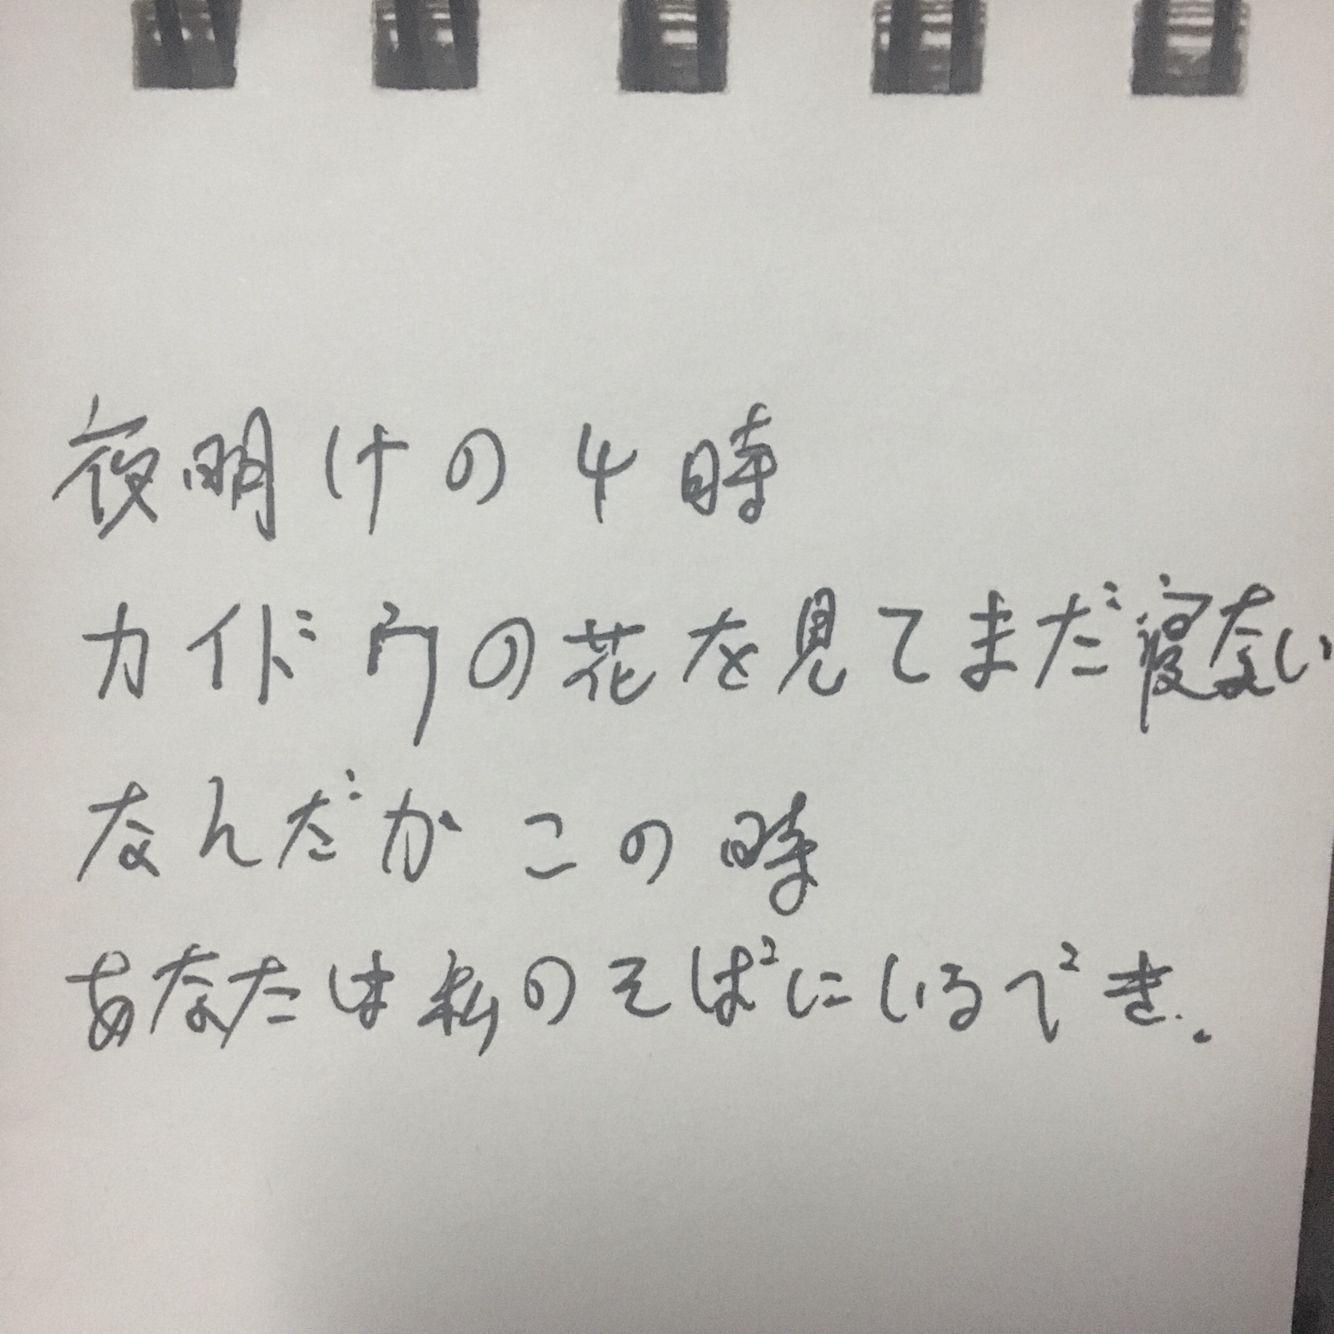 夜明けの4時
カイドウの花を見てまだ寝ない
なんだかこの時
あなたは私のそばにいるでき.